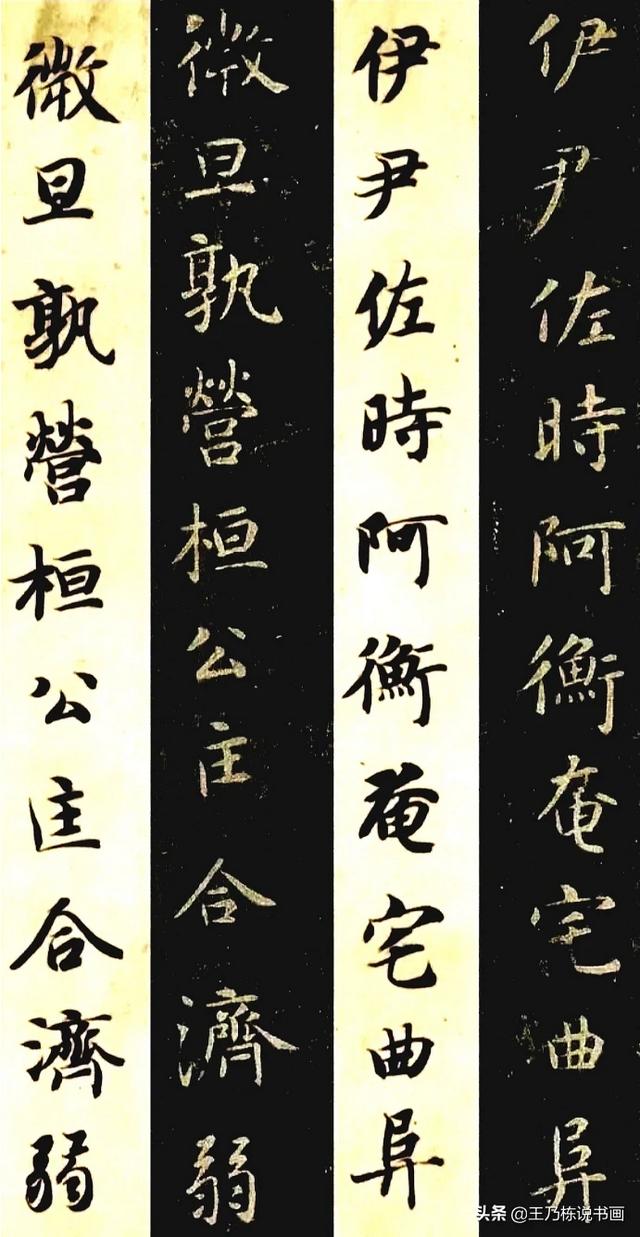 伊尹佐時阿衡奄宅曲阜
伊尹佐時阿衡奄宅曲阜
微旦孰營桓公匡合濟弱
微旦孰營桓公匡合濟弱
头条 @王乃栋说书画